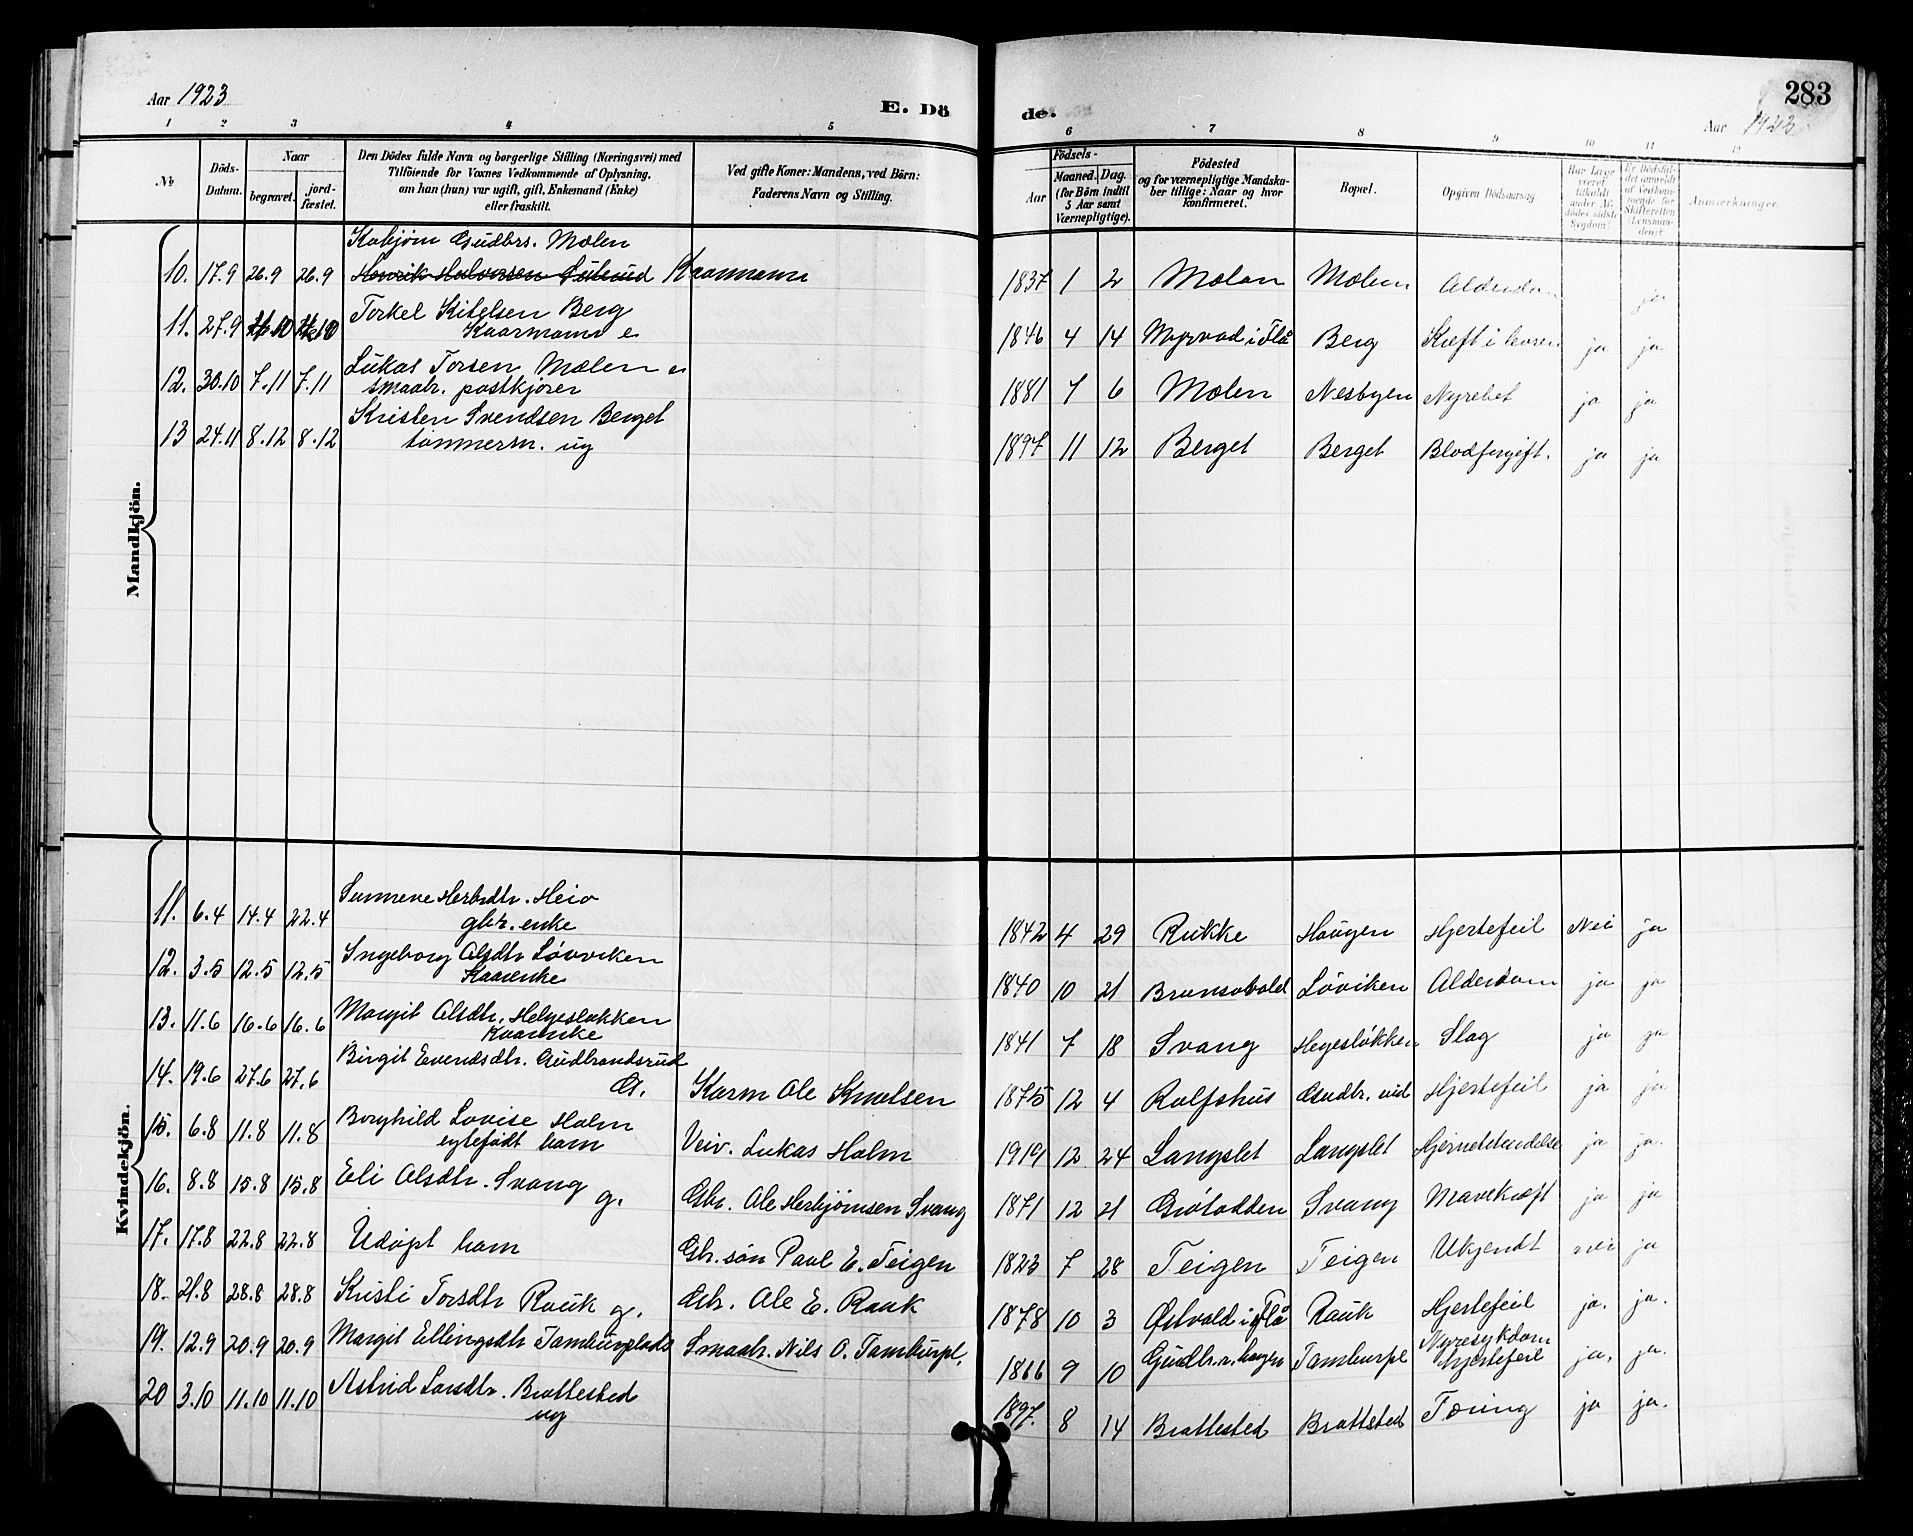 Aar 1923
E. Dö
de.
283
Aar 1923
1 2 3 4 5
6 7 8 9 10 11 12
№
Döds-
Datum.
Naar
begravet.
jord-
fæstet.
Den Dödes fulde Navn og borgerlige Stilling (Næringsvei) med
Tilföiende for Voxnes Vedkommende af Oplysning,
om han (hun) var ugift, gift, Enkemand (Enke)
eller fraskilt.
Ved gifte Koner: Mandens, ved Börn:
Faderens Navn og Stilling.
Födsels-
Aar
Maaned.
Dag.
(for Börn indtil
5 Aar samt
Værnepligtige).
Födested
og for værnepligtige Mandska-
ber tillige: Naar og hvor
konfirmeret.
Bopæl.
Opgiven Dödsaarsag.
Har Læge
været
tilkaldt
under Af-
dödes sidste
Sygdom?
Er Dödsfal-
det anmeldt
af Vedkom-
mende for
Skifteretten
(Lensman-
den)?
Anmærkninger.
Mandkjön.
Gudbrs. Molen
10. 17.9 26.9 26.9 Henrik Halvorsen Kaarmann 1837 1 2 Molen Molen Alderdom ja
Torkel Kitelsen Berg
11. 27.9 Kaarmann e 1846 4 14 Myrvod i Flå Berg Kræft i ja ja
Lukas Torsen Molen
12. 30.10 7.11 7.11 smaabr. postkjører 1881 7 6 Molen Nesbyen Nyrebet ja ja
Kristen Svendsen Berget
13 24.11 8.12 8.12 tømmerm. ug 1897 11 12 Berget Berget Blodforgift. ja ja
Kvindekjön.
Sunneve Herbrdtr. Heio
11. 6.4 14.4 22.4 gbr. enke 1842 4 29 Rukke Haugen Hjertefeil Nei ja
Ingeborg Olsdtr Løvviken
12. 3.5 12.5 12.5 Kaarenke 1840 10 21 Bronsvold Løviken Alderdom ja ja
Margit Olsdtr. Helgesløkken
13. 11.6 16.6 16.6 Kaarenke 1841 7 18 Svang Hegesløkken Slag ja ja
Birgit Evendsdtr. Gudbrandsrud
14. 19.6 27.6 27.6 G. Karm Ole Knutsen 1875 12 4 Rolfshus Gudbr. rud Hjertefeil ja ja
Borghild Lovise Holm
15. 6.8 11.8 11.8 egtefødt barn Veiv. Lukas Holm 1919 12 24 Langslet Langslet Hjernebetændelse ja ja.
16. 8.8 15.8 15.8 Eli Olsdtr. Svang g. Gbr. Ole Herbjørnsen Svang 1871 12 21 Grøtodden Svang Mavekræft ja ja
17. 17.8 22.8 22.8 Udøpt barn Gbr. søn Paul E. Teigen 1823 7 28 Teigen Teigen Ukjendt nei ja
18. 21.8 28.8 28.8 Kristi Torsdtr Rauk g. Gbr. Ole E. Rauk 1878 10 3 Østvold i Flå Rauk Hjertefeil ja. ja.
Nyresykdom
19. 12.9 20.9 20.9 Margit Ellingsdtr Tamburplads Smaabr. Nils O. Tamburpl. 1866 9 10 Gudbr. r. haugen Tamburpl Hjertefeil ja, ja.
20 3.10 11.10 11.10 Astrid Larsdtr. Brattested 1897. 8 14 Brattested Brattsted Tæring ja ja.
ug